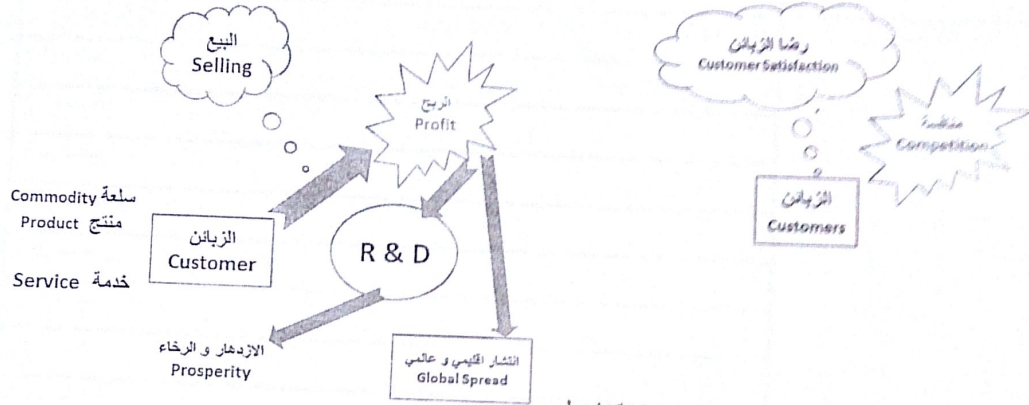 البيع
Selling
الربح
Profit
سلعة Commodity
منتج Product
خدمة Service
الزبائن
Customer
R & D
الازدهار و الرخاء
Prosperity
انتشار اقليمي و عالمي
Global Spread
رضا الزبائن
Customer Satisfaction
Competition
الزبائن
Customers